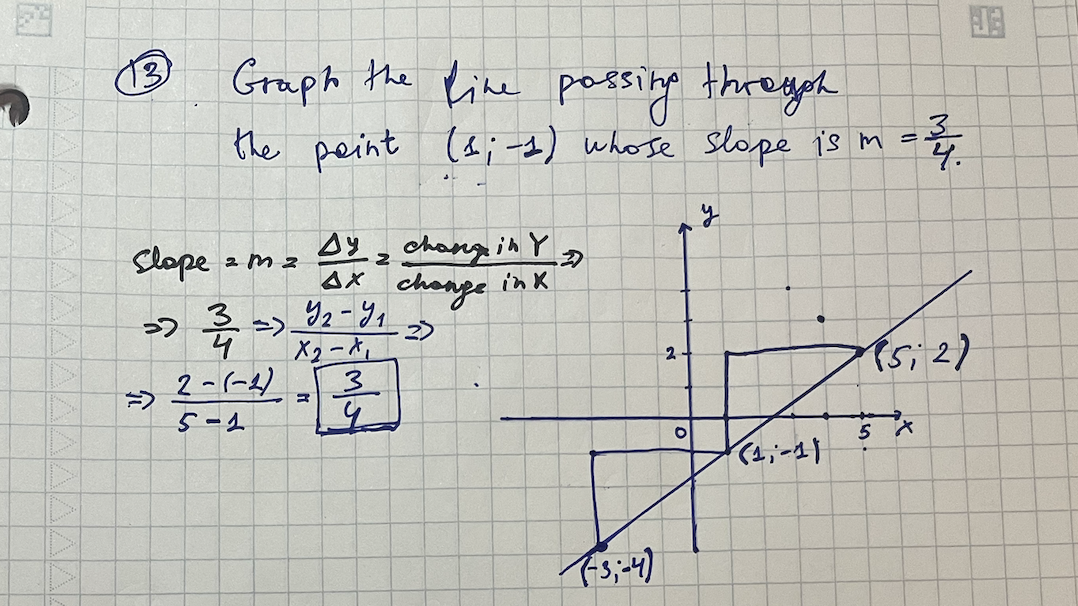 13 Graph the line passing through
the point (1; -1) whose slope is m = 3/4.
Slope = m = Δy/Δx = change in Y/change in X =>
=> 3/4 => y₂ - y₁/x₂ - x₁ =>
=> 2 - (-1)/5 - 1 = 3/4
y
2
(5; 2)
0
5
x
(1; -1)
(-3; -4)